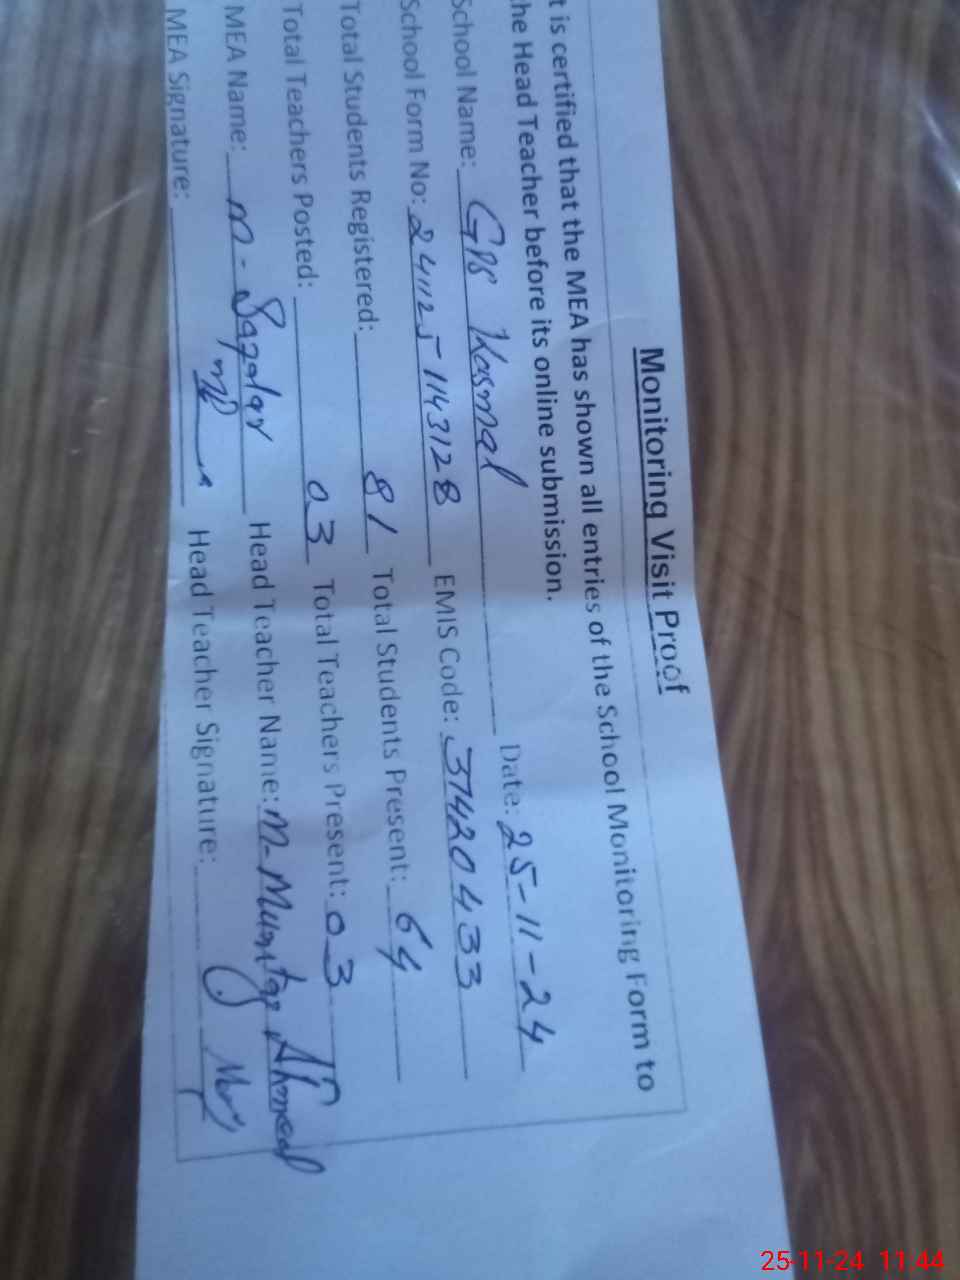 Monitoring Visit Proof
t is certified that the MEA has shown all entries of the School Monitoring Form to
he Head Teacher before its online submission.
School Name: GPS Kasmal Date: 25-11-24
School Form No: 241125-1143128 EMIS Code: 37420433
Total Students Registered: 81 Total Students Present: 64
Total Teachers Posted: 03 Total Teachers Present: 03
MEA Name: M- Head Teacher Name: M-Mumtaz Ahmed
MEA Signature: Head Teacher Signature:
25-11-24 11:44